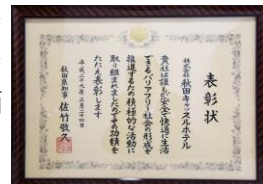 表彰状
株式会社秋田キャッスルホテル
貴社は誰もが安全で快適に生活
できるバリアフリー社会の形成を
推進するため積極的な活動に
取り組まれましたのでその功績を
たたえ表彰します
平成二十九年三月二十四日
秋田県知事 佐竹敬久